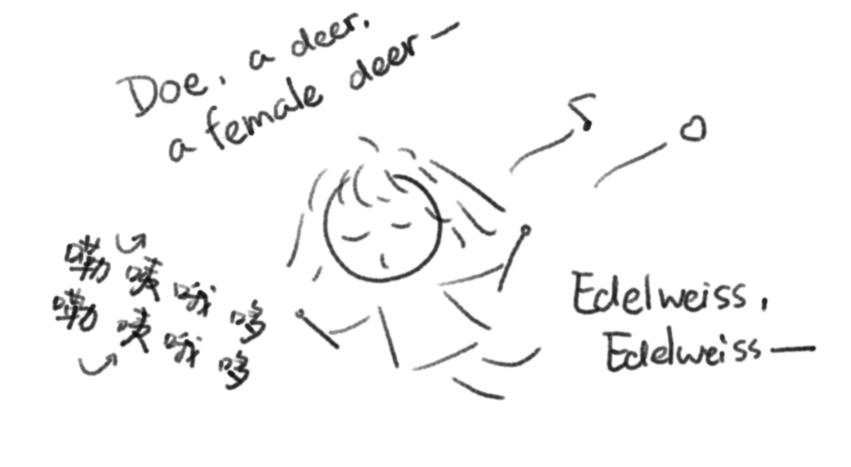 Doe, a deer,
a female deer—
嘞咦哦哆
嘞咦哦哆
Edelweiss,
Edelweiss—